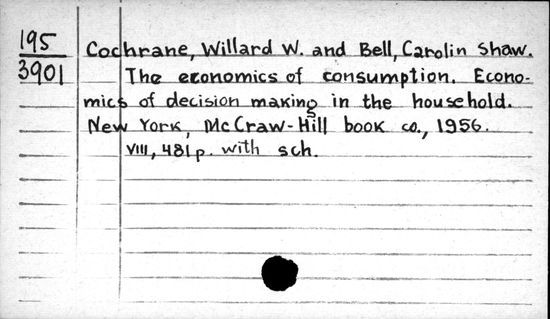 195
3901
Cochrane, Willard W. and Bell, Carolin Shaw.
The economics of consumption. Econo-
mics of decision making in the household.
New York, McCraw-Hill book co., 1956.
VIII, 481 p. with sch.